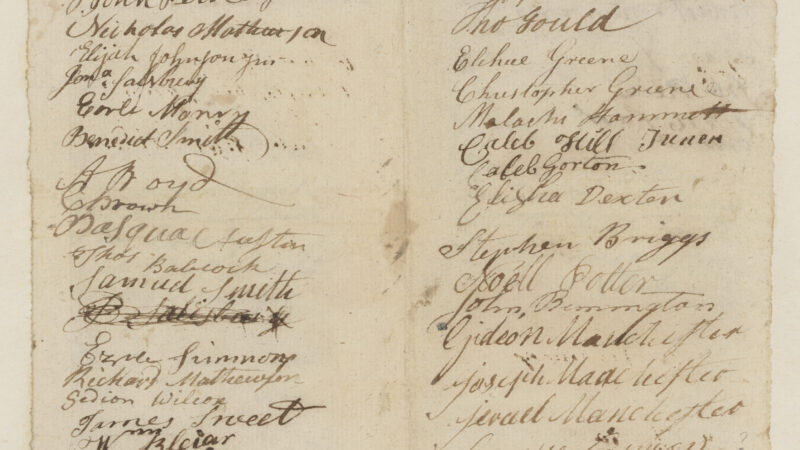 Nicholas Mathewson
Elijah Johnson jun
Jona Salsbury
Benedict Smith
A Boyd
Brown
Pasqua Austin
Thos Babcock
Samuel Smith
Salisbury
Ezra Simmons
Richard Mathewson
Gedion Wilcox
James Sweet
Wm Blciar
Tho Gould
Elihue Greene
Christopher Greene
Malachi Hammett
Caleb Hill Juner
Caleb Gorton
Elisha Dexter
Stephen Briggs
Noell Potter
John Bennington
Gideon Manchester
Joseph Manchester
Jerael Manchester